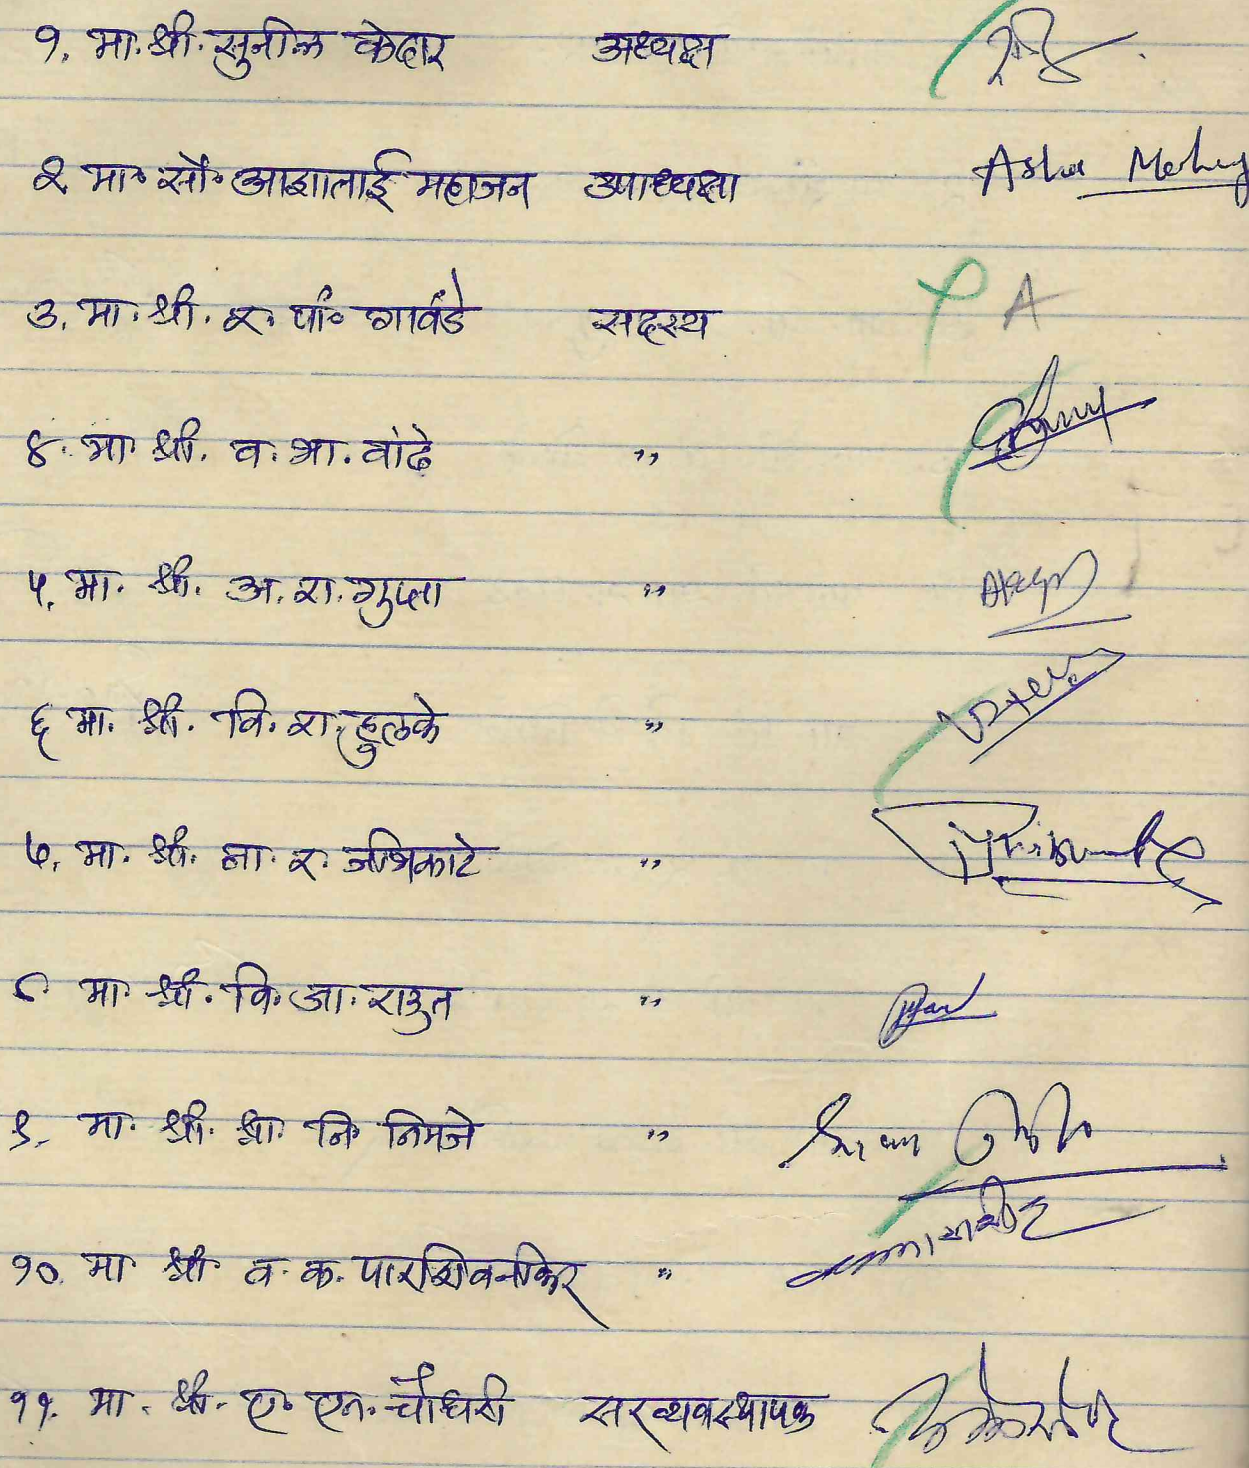 १. मा. श्री. सुनील केदार अध्यक्ष
२. मा॰ सौ॰ आशाताई महाजन उपाध्यक्षा Asha
३. मा. श्री. र. पां॰ गावंडे सदस्य A
४. मा. श्री. व. भा. वांढे "
५. मा. श्री. अ. रा. गुप्ता "
६ मा. श्री. वि. रा. हुलके "
७. मा. श्री. ना. र. जत्रिकाटे "
८ मा. श्री. वि. जा. राउत "
९. मा. श्री. श्रा. नि. निमजे "
१०. मा श्री व. क. पारशिवनीकर "
११. मा. श्री. ए॰ एन. चौधरी सरव्यवस्थापक